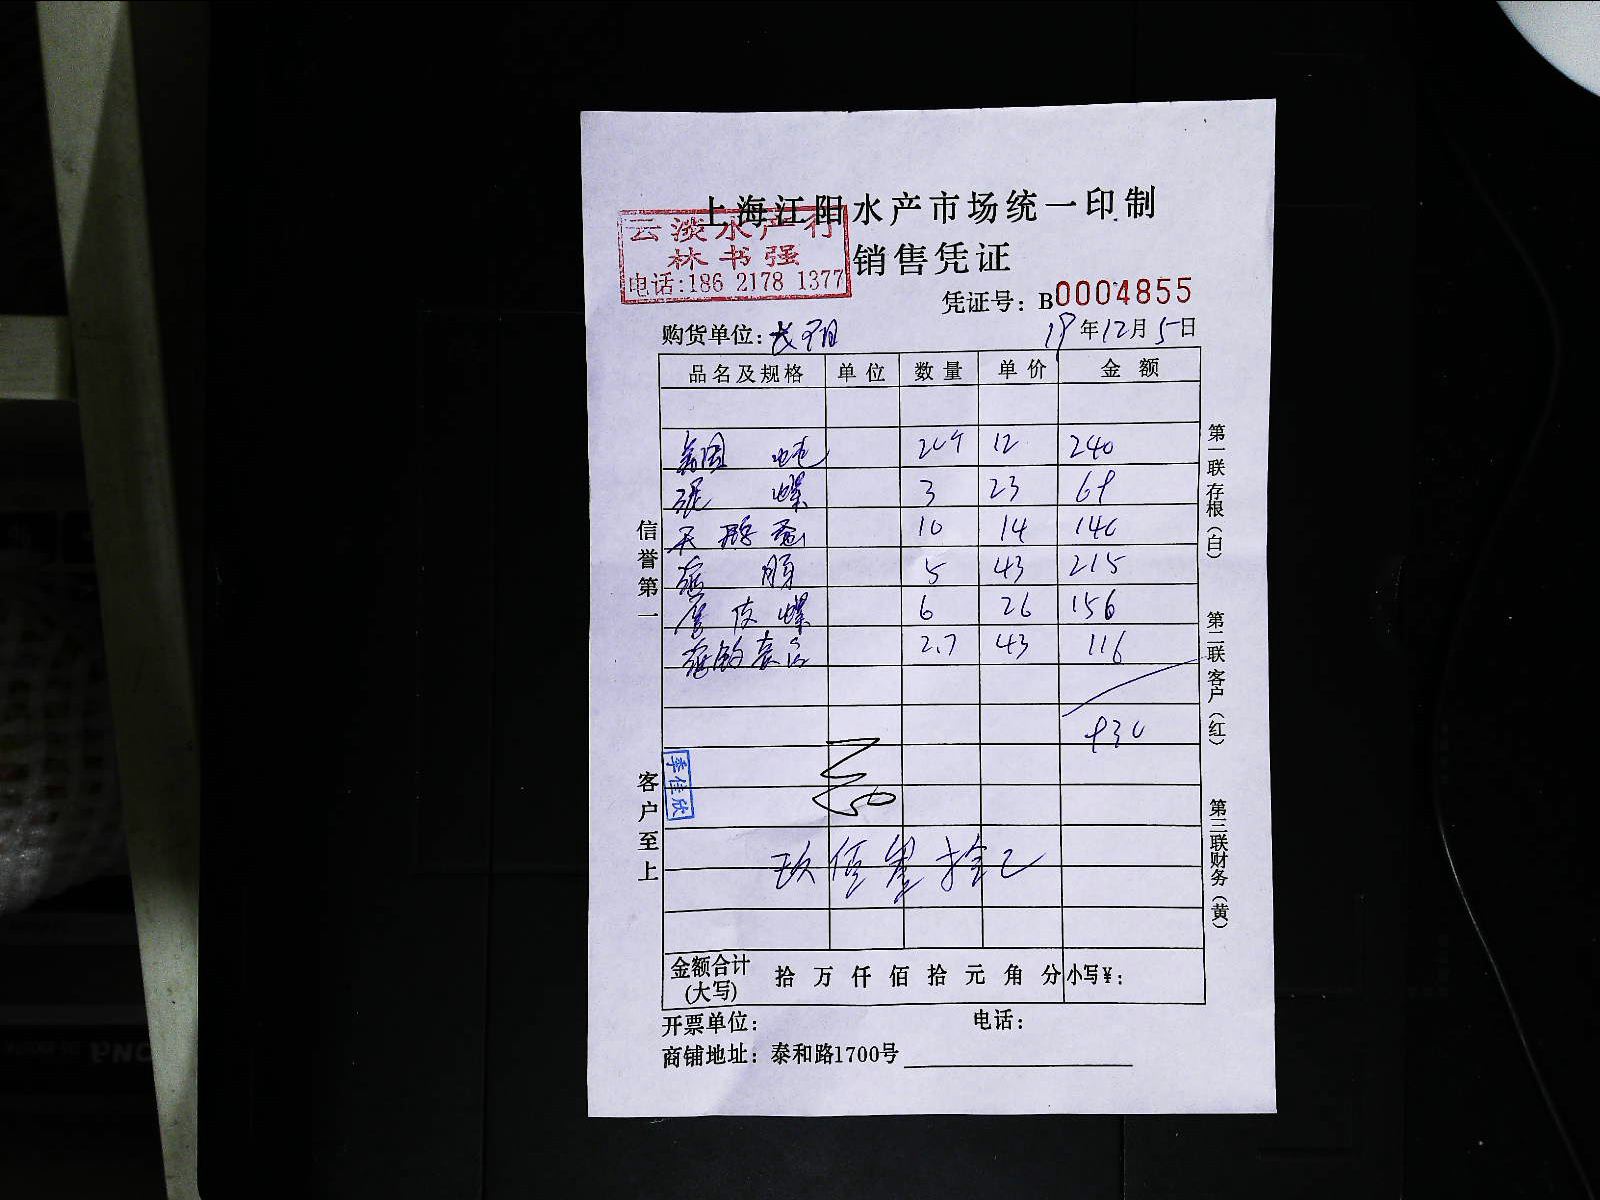 上海江阳水产市场统一印制
云淡水产行
林书强
电话:186 2178 1377
销售凭证
凭证号: B0004855
购货单位: 长
19年12月5日
品名及规格 单位 数量 单价 金额
美国 12 240
螺 3 23 69
天鹅蛋 10 14 140
5 43 215
皮螺 6 26 156
2.7 43 116
930
玖佰 拾
季佳欣
信誉第一
客户至上
第一联存根(白)
第二联客户(红)
第三联财务(黄)
金额合计(大写) 拾 万 仟 佰 拾 元 角 分 小写¥:
开票单位: 电话:
商铺地址: 泰和路1700号